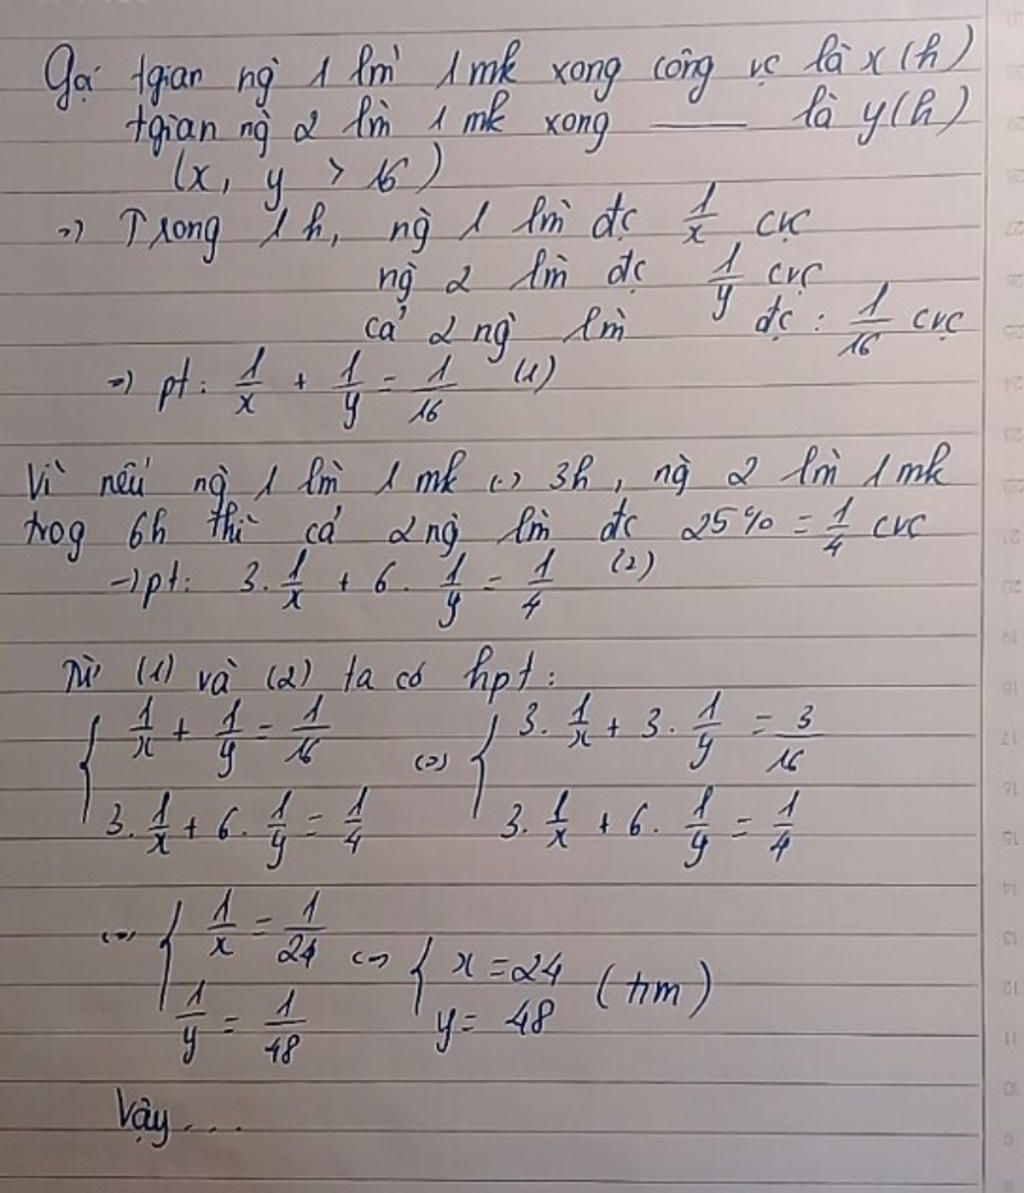 Gọi tgian ng` 1 lm` 1 mk xong công vc là x (h)
tgian ng` 2 lm` 1 mk xong —— là y (h)
(x, y > 16)
=> Trong 1 h, ng` 1 lm` đc 1/x cvc
ng` 2 lm` đc 1/y cvc
cả 2 ng` lm` đc : 1/16 cvc
=> pt: 1/x + 1/y = 1/16 (1)
Vì nếu ng` 1 lm` 1 mk (-) 3h, ng` 2 lm` 1 mk
trog 6h thì cả 2 ng` lm` đc 25% = 1/4 cvc
=> pt: 3. 1/x + 6. 1/y = 1/4 (2)
Từ (1) và (2) ta có hpt:
{ 1/x + 1/y = 1/16 <=> { 3. 1/x + 3. 1/y = 3/16
3. 1/x + 6. 1/y = 1/4 3. 1/x + 6. 1/y = 1/4
<=> { 1/x = 1/24 <=> { x = 24 (tm)
1/y = 1/48 y = 48
Vậy...